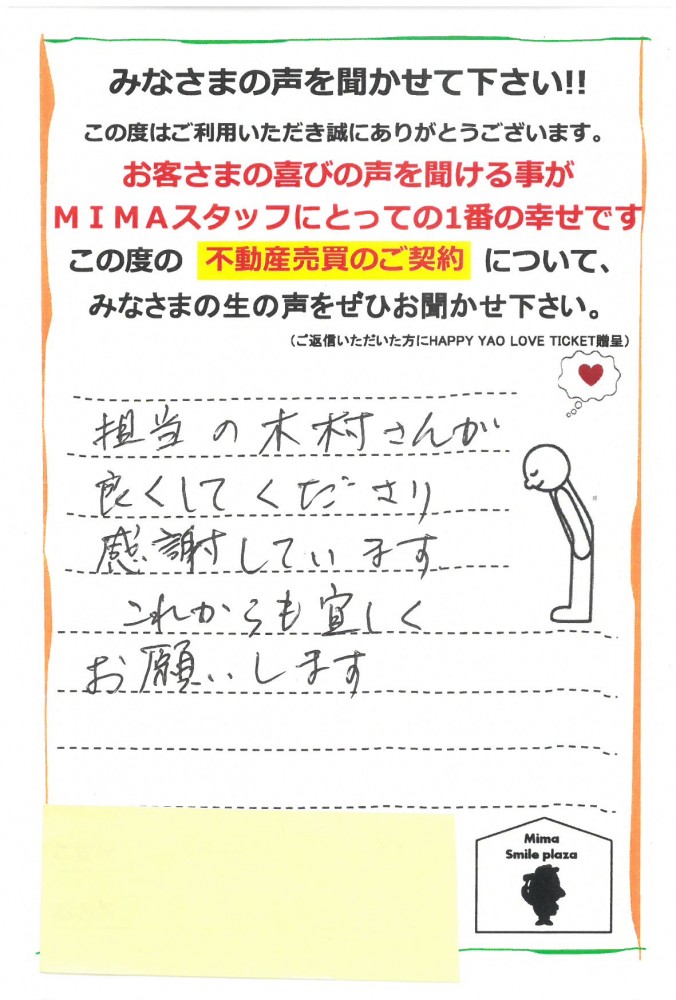 みなさまの声を聞かせて下さい!!
この度はご利用いただき誠にありがとうございます。
お客さまの喜びの声を聞ける事が
ＭＩＭＡスタッフにとっての1番の幸せです
この度の 不動産売買のご契約 について、
みなさまの生の声をぜひお聞かせ下さい。
（ご返信いただいた方にHAPPY YAO LOVE TICKET贈呈）
担当の木村さんが
良くしてくださり
感謝しています
これからも宜しく
お願いします
Mima
Smile plaza